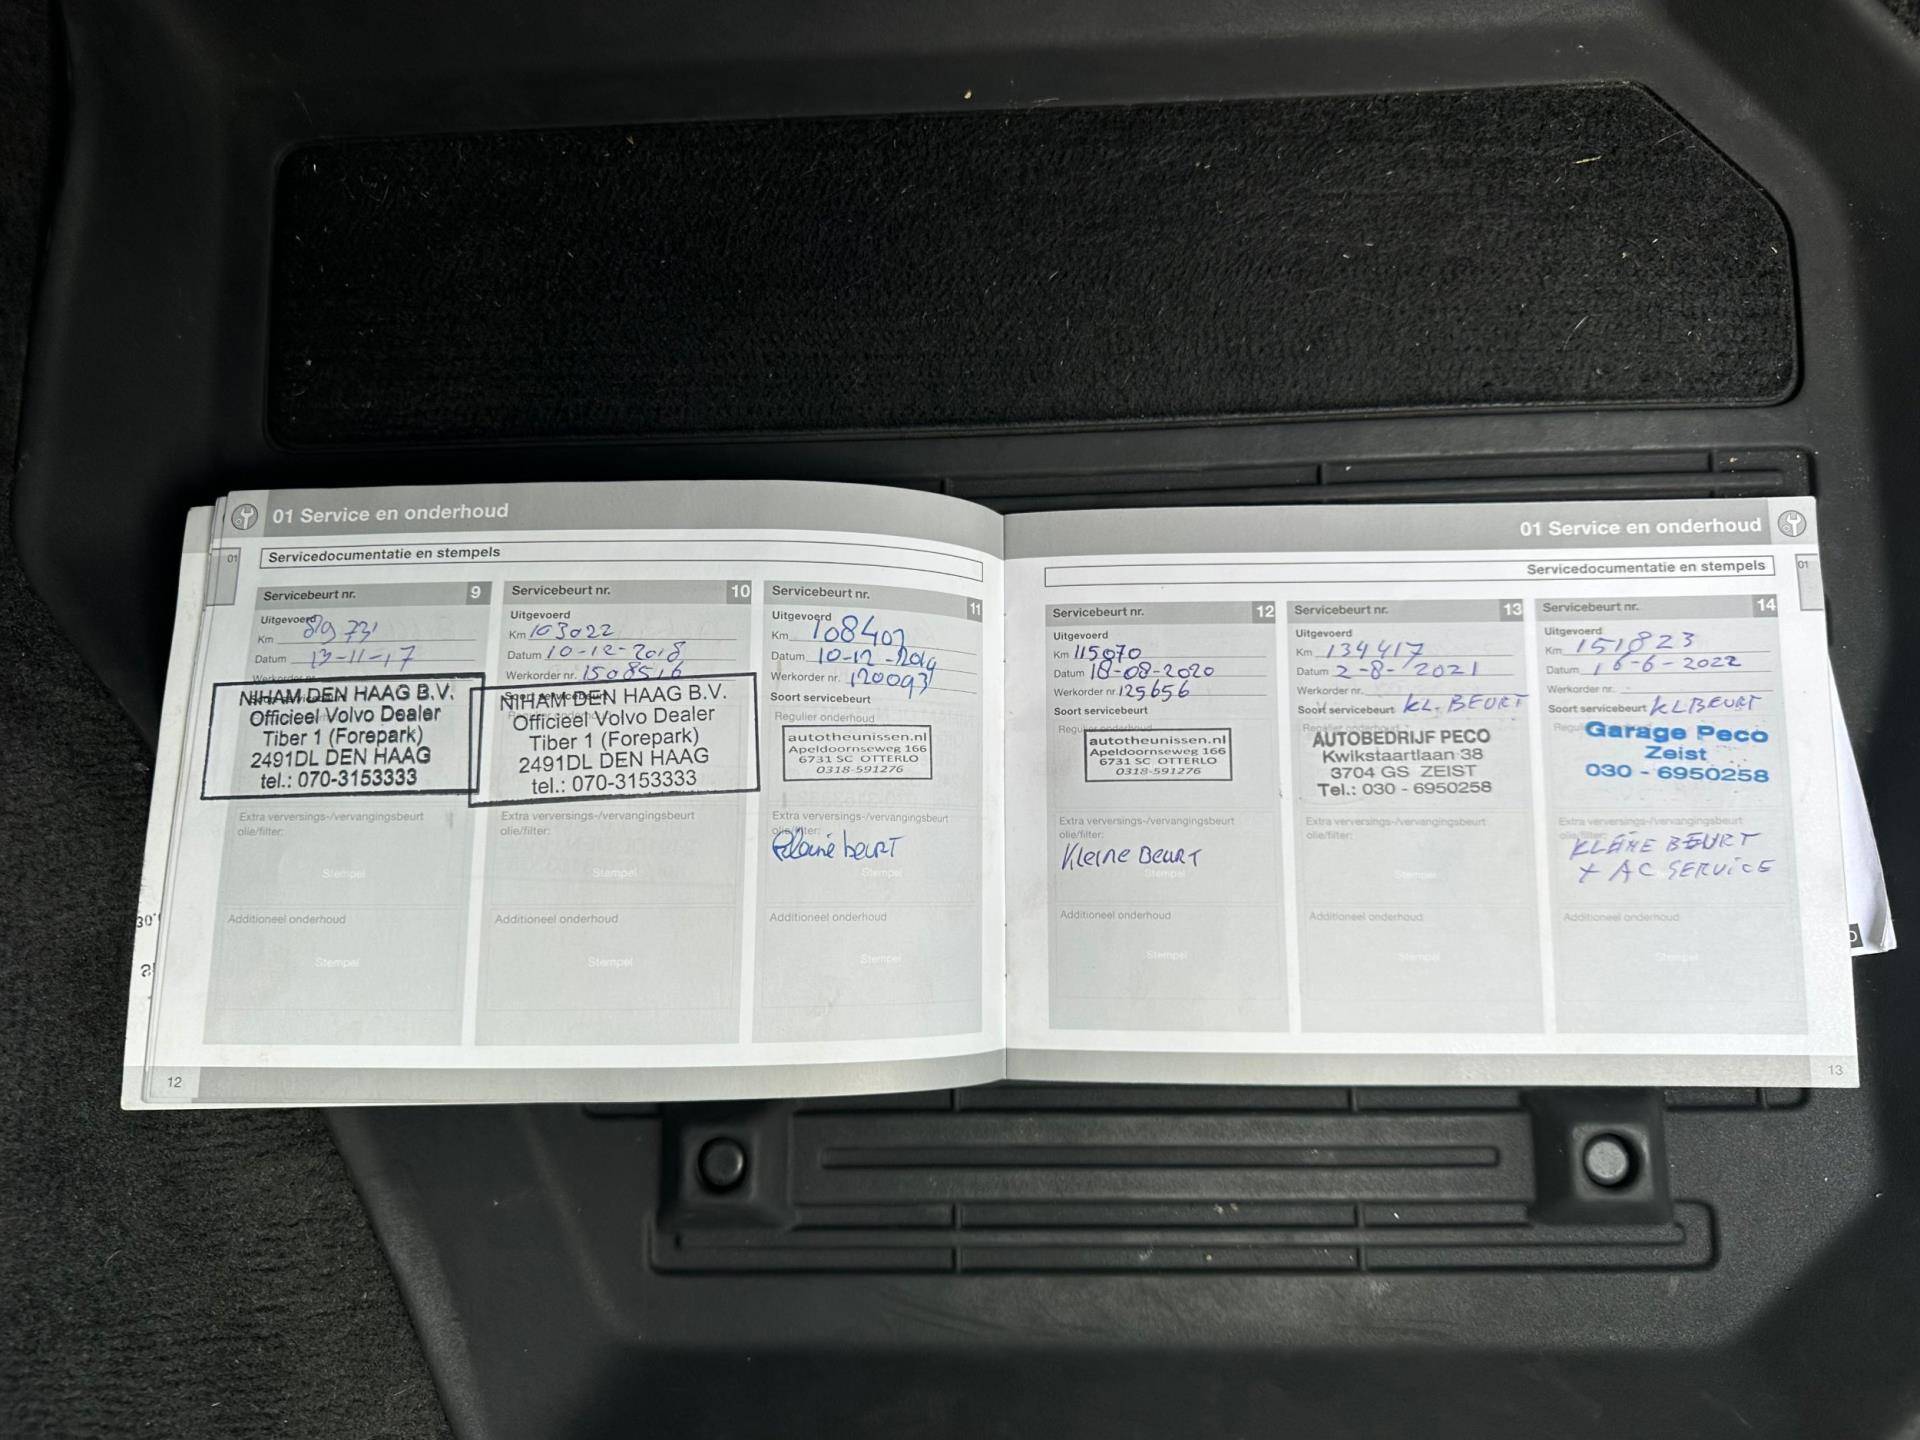 01 Service en onderhoud
01
Servicedocumentatie en stempels
Servicebeurt nr. 9
Uitgevoerd
Km
Datum 13-11-17
Werkorder nr.
NIHAM DEN HAAG B.V.
Officieel Volvo Dealer
Tiber 1 (Forepark)
2491DL DEN HAAG
tel.: 070-3153333
Extra verversings-/vervangingsbeurt
olie/filter:
Stempel
Additioneel onderhoud
Stempel
Servicebeurt nr. 10
Uitgevoerd
Km 103022
Datum 10-12-2018
Werkorder nr. 1508516
Soort servicebeurt
NIHAM DEN HAAG B.V.
Officieel Volvo Dealer
Tiber 1 (Forepark)
2491DL DEN HAAG
tel.: 070-3153333
Extra verversings-/vervangingsbeurt
olie/filter:
Stempel
Additioneel onderhoud
Stempel
Servicebeurt nr. 11
Uitgevoerd
Km 108407
Datum 10-12-2019
Werkorder nr. 120093
Soort servicebeurt
Regulier onderhoud
autotheunissen.nl
Apeldoornseweg 166
6731 SC OTTERLO
0318-591276
Extra verversings-/vervangingsbeurt
olie/filter:
beurt
Stempel
Additioneel onderhoud
Stempel
12
01 Service en onderhoud
Servicedocumentatie en stempels
01
Servicebeurt nr. 12
Uitgevoerd
Km 115070
Datum 18-08-2020
Werkorder nr. 125656
Soort servicebeurt
Regulier onderhoud
autotheunissen.nl
Apeldoornseweg 166
6731 SC OTTERLO
0318-591276
Extra verversings-/vervangingsbeurt
olie/filter:
Kleine Beurt
Stempel
Additioneel onderhoud
Stempel
Servicebeurt nr. 13
Uitgevoerd
Km 134417
Datum 2-8-2021
Werkorder nr.
Soort servicebeurt KL. BEURT
Regulier onderhoud
AUTOBEDRIJF PECO
Kwikstaartlaan 38
3704 GS ZEIST
Tel.: 030 - 6950258
Extra verversings-/vervangingsbeurt
olie/filter:
Stempel
Additioneel onderhoud
Stempel
Servicebeurt nr. 14
Uitgevoerd
Km 151823
Datum 16-6-2022
Werkorder nr.
Soort servicebeurt KL BEURT
Garage Peco
Zeist
030 - 6950258
Extra verversings-/vervangingsbeurt
olie/filter:
KLEINE BEURT
+ AC SERVICE
Additioneel onderhoud
Stempel
13